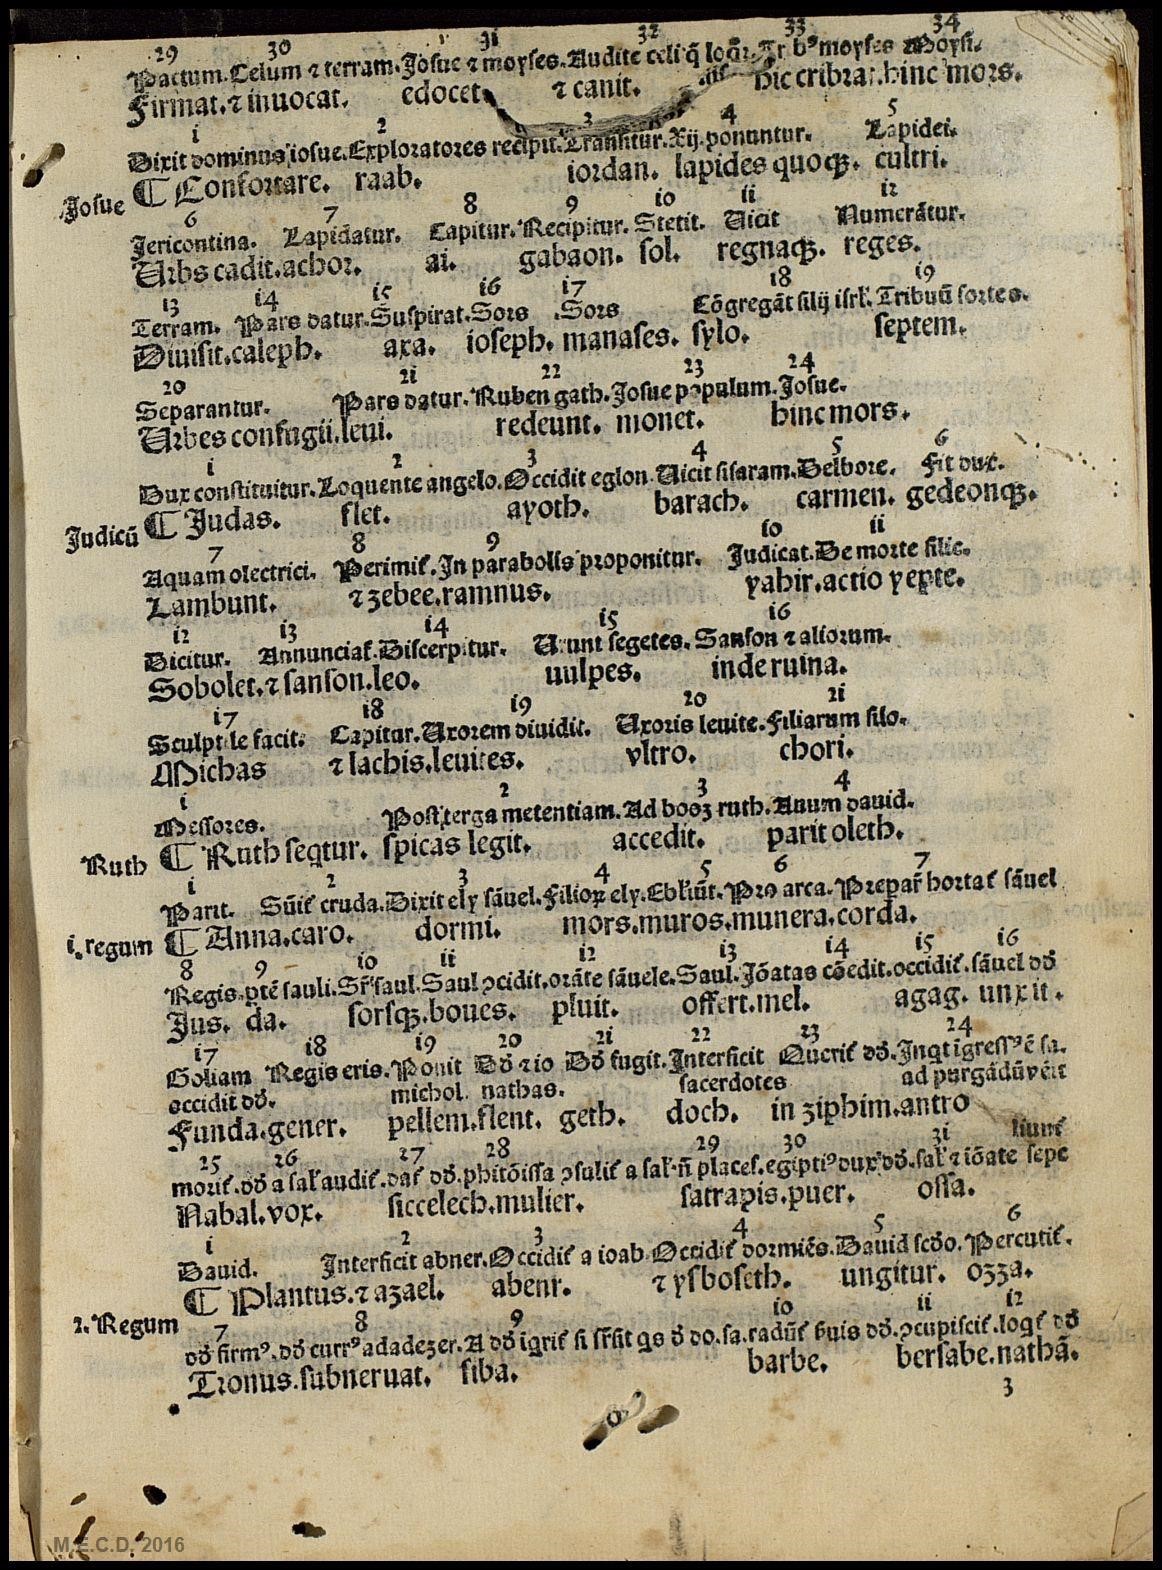 29 30 31 32 33 34
Pactum. Celum ⁊ terram. Josue ⁊ moyses. Audite celi q̄ loq̄r. moyses Moysi.
Firmat. ⁊ inuocat. edocet. ⁊ canit. hic cribrat. hinc mors.
1 2 3 4 5
Dixit dominus iosue. Exploratores recipit. Transitur. Xij. ponuntur. Lapidei.
Josue ¶ Confortare. raab. iordan. lapides quoqꝫ. cultri.
6 7 8 9 10 11 12
Jericontina. Lapidatur. Capitur. Recipitur. Stetit. Uicit Numerātur.
Urbs cadit. achor. ai. gabaon. sol. regnaqꝫ. reges.
13 14 15 16 17 18 19
Terram. Pars datur. Suspirat. Sors. Sors Cōgregāt filij isrł. Tribuū sortes.
Diuisit. caleph. axa. ioseph. manases. sylo. septem.
20 21 22 23 24
Separantur. Pars datur. Ruben gath. Josue populum. Josue.
Urbes confugii. leui. redeunt. monet. hinc mors.
1 2 3 4 5 6
Dux constituitur. Loquente angelo. Occidit eglon. Uicit sisaram. Delbore. Fit dux.
Judicū ¶ Judas. flet. ayoth. barach. carmen. gedeonqꝫ.
7 8 9 10 11
Aquam olectrici. Perimit̄. In parabolis proponitur. Judicat. De morte filie.
Lambunt. ⁊ zebee. ramnus. yahir. actio yepte.
12 13 14 15 16
Dicitur. Annunciat̄. Discerpitur. Urunt segetes. Sanson ⁊ aliorum.
Sobolet. ⁊ sanson. leo. uulpes. inde ruina.
17 18 19 20 21
Sculptile facit. Capitur. Uxorem diuidit. Uxoris leuite. Filiarum silo.
Michas ⁊ lachis. leuites. vltro. chori.
1 2 3 4
Messores. Post terga metentiam. Ad booz ruth. Auum dauid.
Ruth ¶ Ruth seqtur. spicas legit. accedit. parit oleth.
1 2 3 4 5 6 7
Parit. Sūit̄ cruda. Dixit ely sāuel. Filioꝝ ely. Pro arca. Prepar̄ hortat̄ sāuel
1. regum ¶ Anna. caro. dormi. mors. muros. munera. corda.
8 9 10 11 12 13 14 15 16
Regis. ptē sauli. Sr̄ saul. Saul ꝯcidit. orāte sāuele. Saul. Jōatas cōedit. occidit̄. sāuel dđ
Jus. da. sorsqꝫ. boues. pluit. offert. mel. agag. unxit.
17 18 19 20 21 22 23 24
Goliam Regis eris. Ponit Dđ ⁊ io Dđ fugit. Interficit Querit̄ dđ. Inqt īgressꝰ ē sa.
occidit dđ. michol. nathas. sacerdotes ad purgādū vēit
Funda. gener. pellem. flent. geth. doch. in ziphim. antro
25 26 27 28 29 30 31
morit̄. dđ a sał audit̄. dat̄ dđ. phitōissa ꝯsulit̄ a sał. n̄ placet̄. egiptiꝰ duxꝰ dđ. sał ⁊ iōate sepe
Nabal. vox. siccelech. mulier. satrapis. puer. ossa.
1 2 3 4 5 6
Dauid. Interficit abner. Occidit̄ a ioab. Occidit̄ dormiēs. Dauid scđo. Percutit̄.
¶ Plantus. ⁊ azael. abenr. ⁊ ysboseth. ungitur. ozza.
2. Regum
7 8 9 10 11 12
dđ firmꝰ. dđ currꝰ adadezer. A dđ īqrit̄ si sr̄sit qs đ do. sa. radūt̄ ẜuis dđ. ꝯcupiscit̄. loqt̄ dđ
Tronus. subneruat. siba. barbe. bersabe. nathā.
3
M.E.C.D. 2016